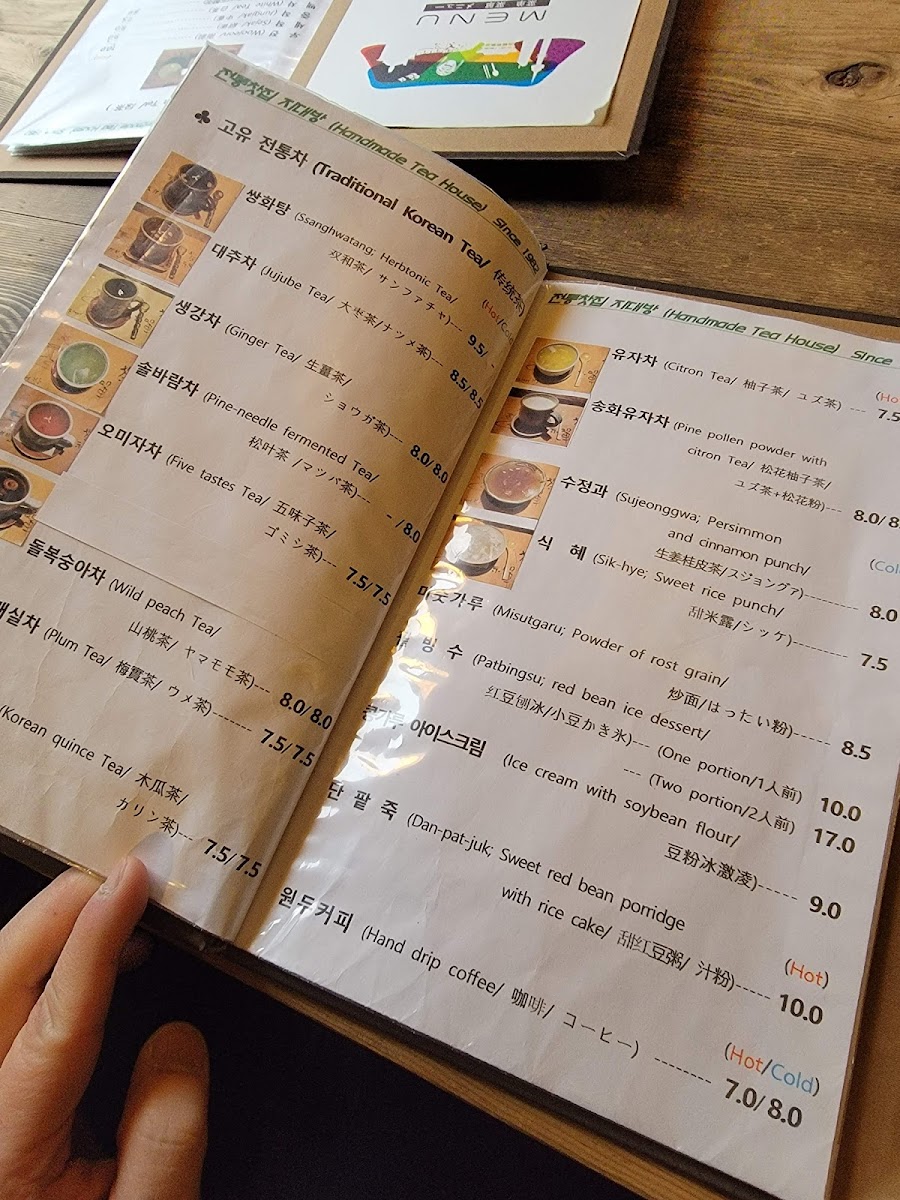 MENU
전통찻집 지대방 (Handmade Tea House) since 1982
♣ 고유 전통차 (Traditional Korean Tea/ 传统茶)
(Hot/Co
쌍화탕 (Ssanghwatang; Herbtonic Tea/
双和茶/ サンファチャ)--- 9.5/ -
대추차 (Jujube Tea/ 大枣茶/ナツメ茶)--- 8.5/8.5
생강차 (Ginger Tea/ 生薑茶/
ショウガ茶)--- 8.0/8.0
솔바람차 (Pine-needle fermented Tea/
松叶茶 /マツバ茶)--- - /8.0
오미자차 (Five tastes Tea/ 五味子茶/
ゴミシ茶)--- 7.5/7.5
돌복숭아차 (Wild peach Tea/
山桃茶/ ヤマモモ茶)--- 8.0/8.0
매실차 (Plum Tea/ 梅實茶/ ウメ茶)------- 7.5/7.5
(Korean quince Tea/ 木瓜茶/
カリン茶)--- 7.5/7.5
전통찻집 지대방 (Handmade Tea House) since
(Ho
유자차 (Citron Tea/ 柚子茶/ ユズ茶) --- 7.5
송화유자차 (Pine pollen powder with
citron Tea/ 松花柚子茶/
ユズ茶+松花粉)--- 8.0/8
(Col
수정과 (Sujeonggwa; Persimmon
and cinnamon punch/
生姜桂皮茶/スジョングァ)--------- 8.0
식 혜 (Sik-hye; Sweet rice punch/
甜米露/シッケ)---------- 7.5
미숫가루 (Misutgaru; Powder of rost grain/
炒面/はったい粉)------ 8.5
빙 수 (Patbingsu; red bean ice dessert/
红豆刨冰/小豆かき氷)--- (One portion/1人前) 10.0
--- (Two portion/2人前) 17.0
콩가루 아이스크림 (Ice cream with soybean flour/
豆粉冰激凌)------ 9.0
단 팥 죽 (Dan-pat-juk; Sweet red bean porridge
with rice cake/ 甜红豆粥/ 汁粉)-----
(Hot)
10.0
원두커피 (Hand drip coffee/ 咖啡/ コーヒー) ---------
(Hot/Cold)
7.0/8.0